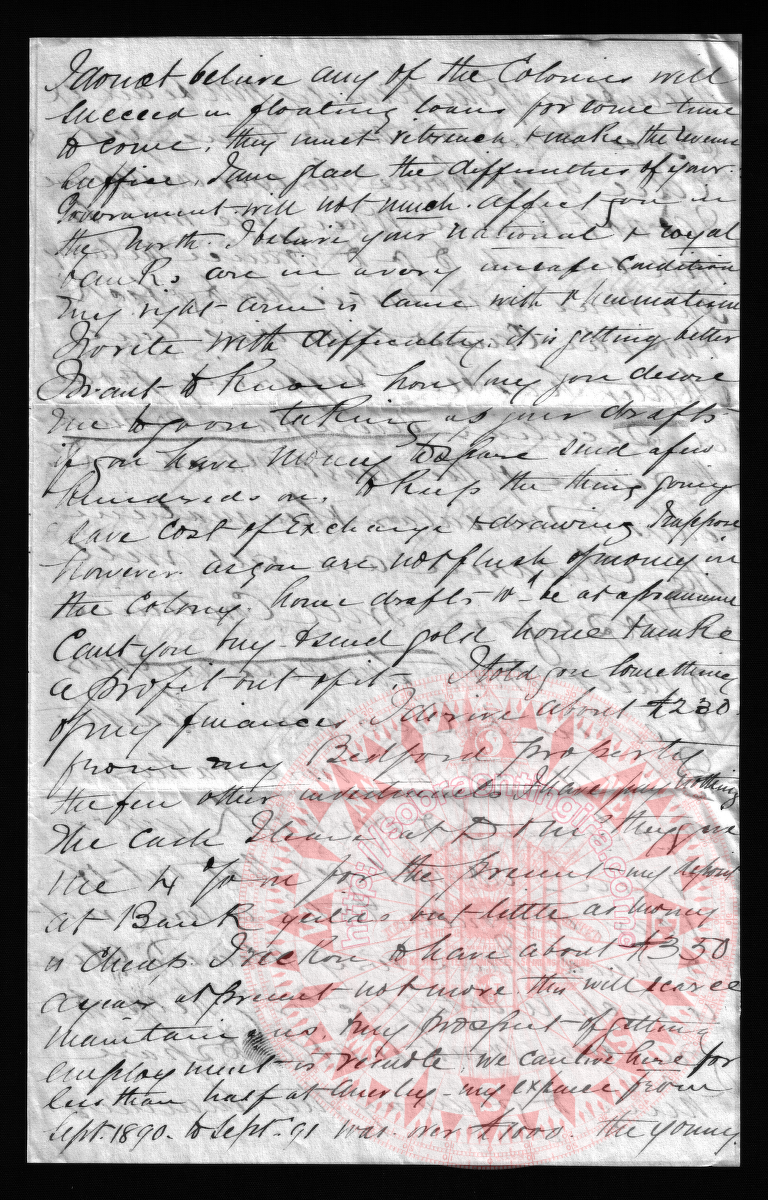 I do not believe any of the Colonies will
succeed in floating loans for some time
to come, they must retrench & make the revenue
suffice. I am glad the difficulties of your
Government will not much affect you in
the North. I believe your national & royal
banks are in a very unsafe condition
My right arm is lame with Rheumatism
I write with difficulty, it is getting better
I want to know how long you desire
me to go on taking up your drafts
if you have money to spare send a few
hundreds on, to keep the thing going
save cost of Exchange & drawing I suppose
however as you are not flush of money in
the Colony. home drafts wd be at a premium
Cant you buy & send gold home & make
a profit out of it - I told you something
of my finances I derive about £230
from my Bedford property
the few other investments I have pay nothing
The cash I leave at they give
me 4 % on for the present - my deposit
at Bank yields but little as money
is cheap. I reckon to have about £350
a year at present not more this will scarce
maintain us. my prospect of getting
employment is remote, we can live here for
less than half at Anerley - my expence from
Sept. 1890. to Sept. 91 was over £1000. the young
http://sobrachtingira.com